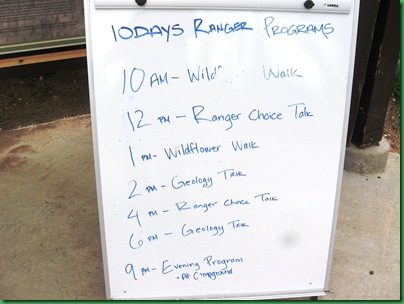 TODAYS RANGER PROGRAMS
10 AM - Wild Walk
12 PM - Ranger Choice Talk
1 PM - Wildflower Walk
2 PM - Geology Talk
4 PM - Ranger Choice Talk
6 PM - Geology Talk
9 PM - Evening Program
• At Campground